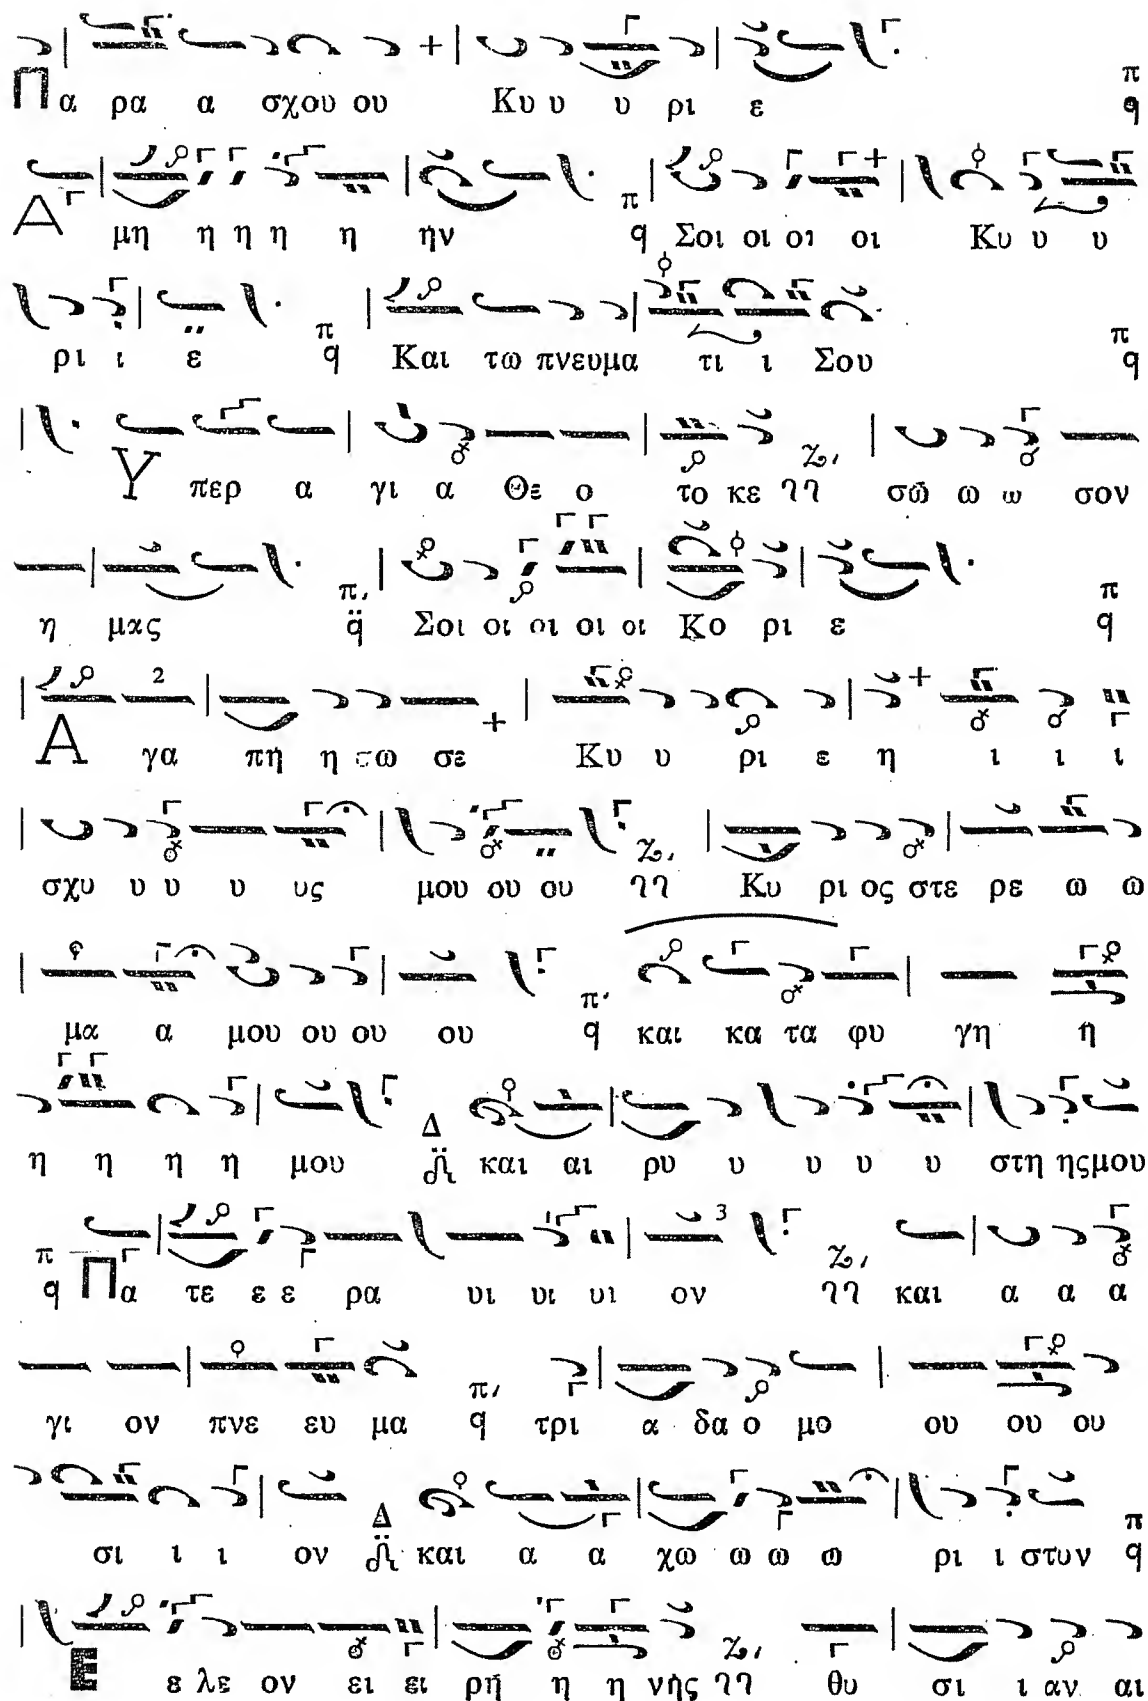 Πα ρα α σχου ου Κυ υ υ ρι ε π q
Α μη η η η η ήν π q Σοι οι οι οι Κυ υ υ
ρι ι ε π q Και τω πνευμα τι ι Σου π q
Υ περ α γι α Θε ο το κε σω ω ω σον
η μας π q Σοι οι οι οι οι Κο ρι ε π q
Α γα πή η σω σε Κυ υ ρι ε η ι ι ι
σχυ υ υ υ υς μου ου ου Κυ ρι ος στε ρε ω ω
μα α μου ου ου ου π q και κα τα φυ γη ή
η η η η μου Δ και αι ρυ υ υ υ υ στη ης μου
π q Πα τε ε ε ρα υι υι υι ον και α α α
γι ον πνε ευ μα π q τρι α δα ο μο ου ου ου
σι ι ι ον Δ και α α χω ω ω ω ρι ι στυν π q
Ε ε λε ον ει ει ρή η η νής θυ σι ι αν αι